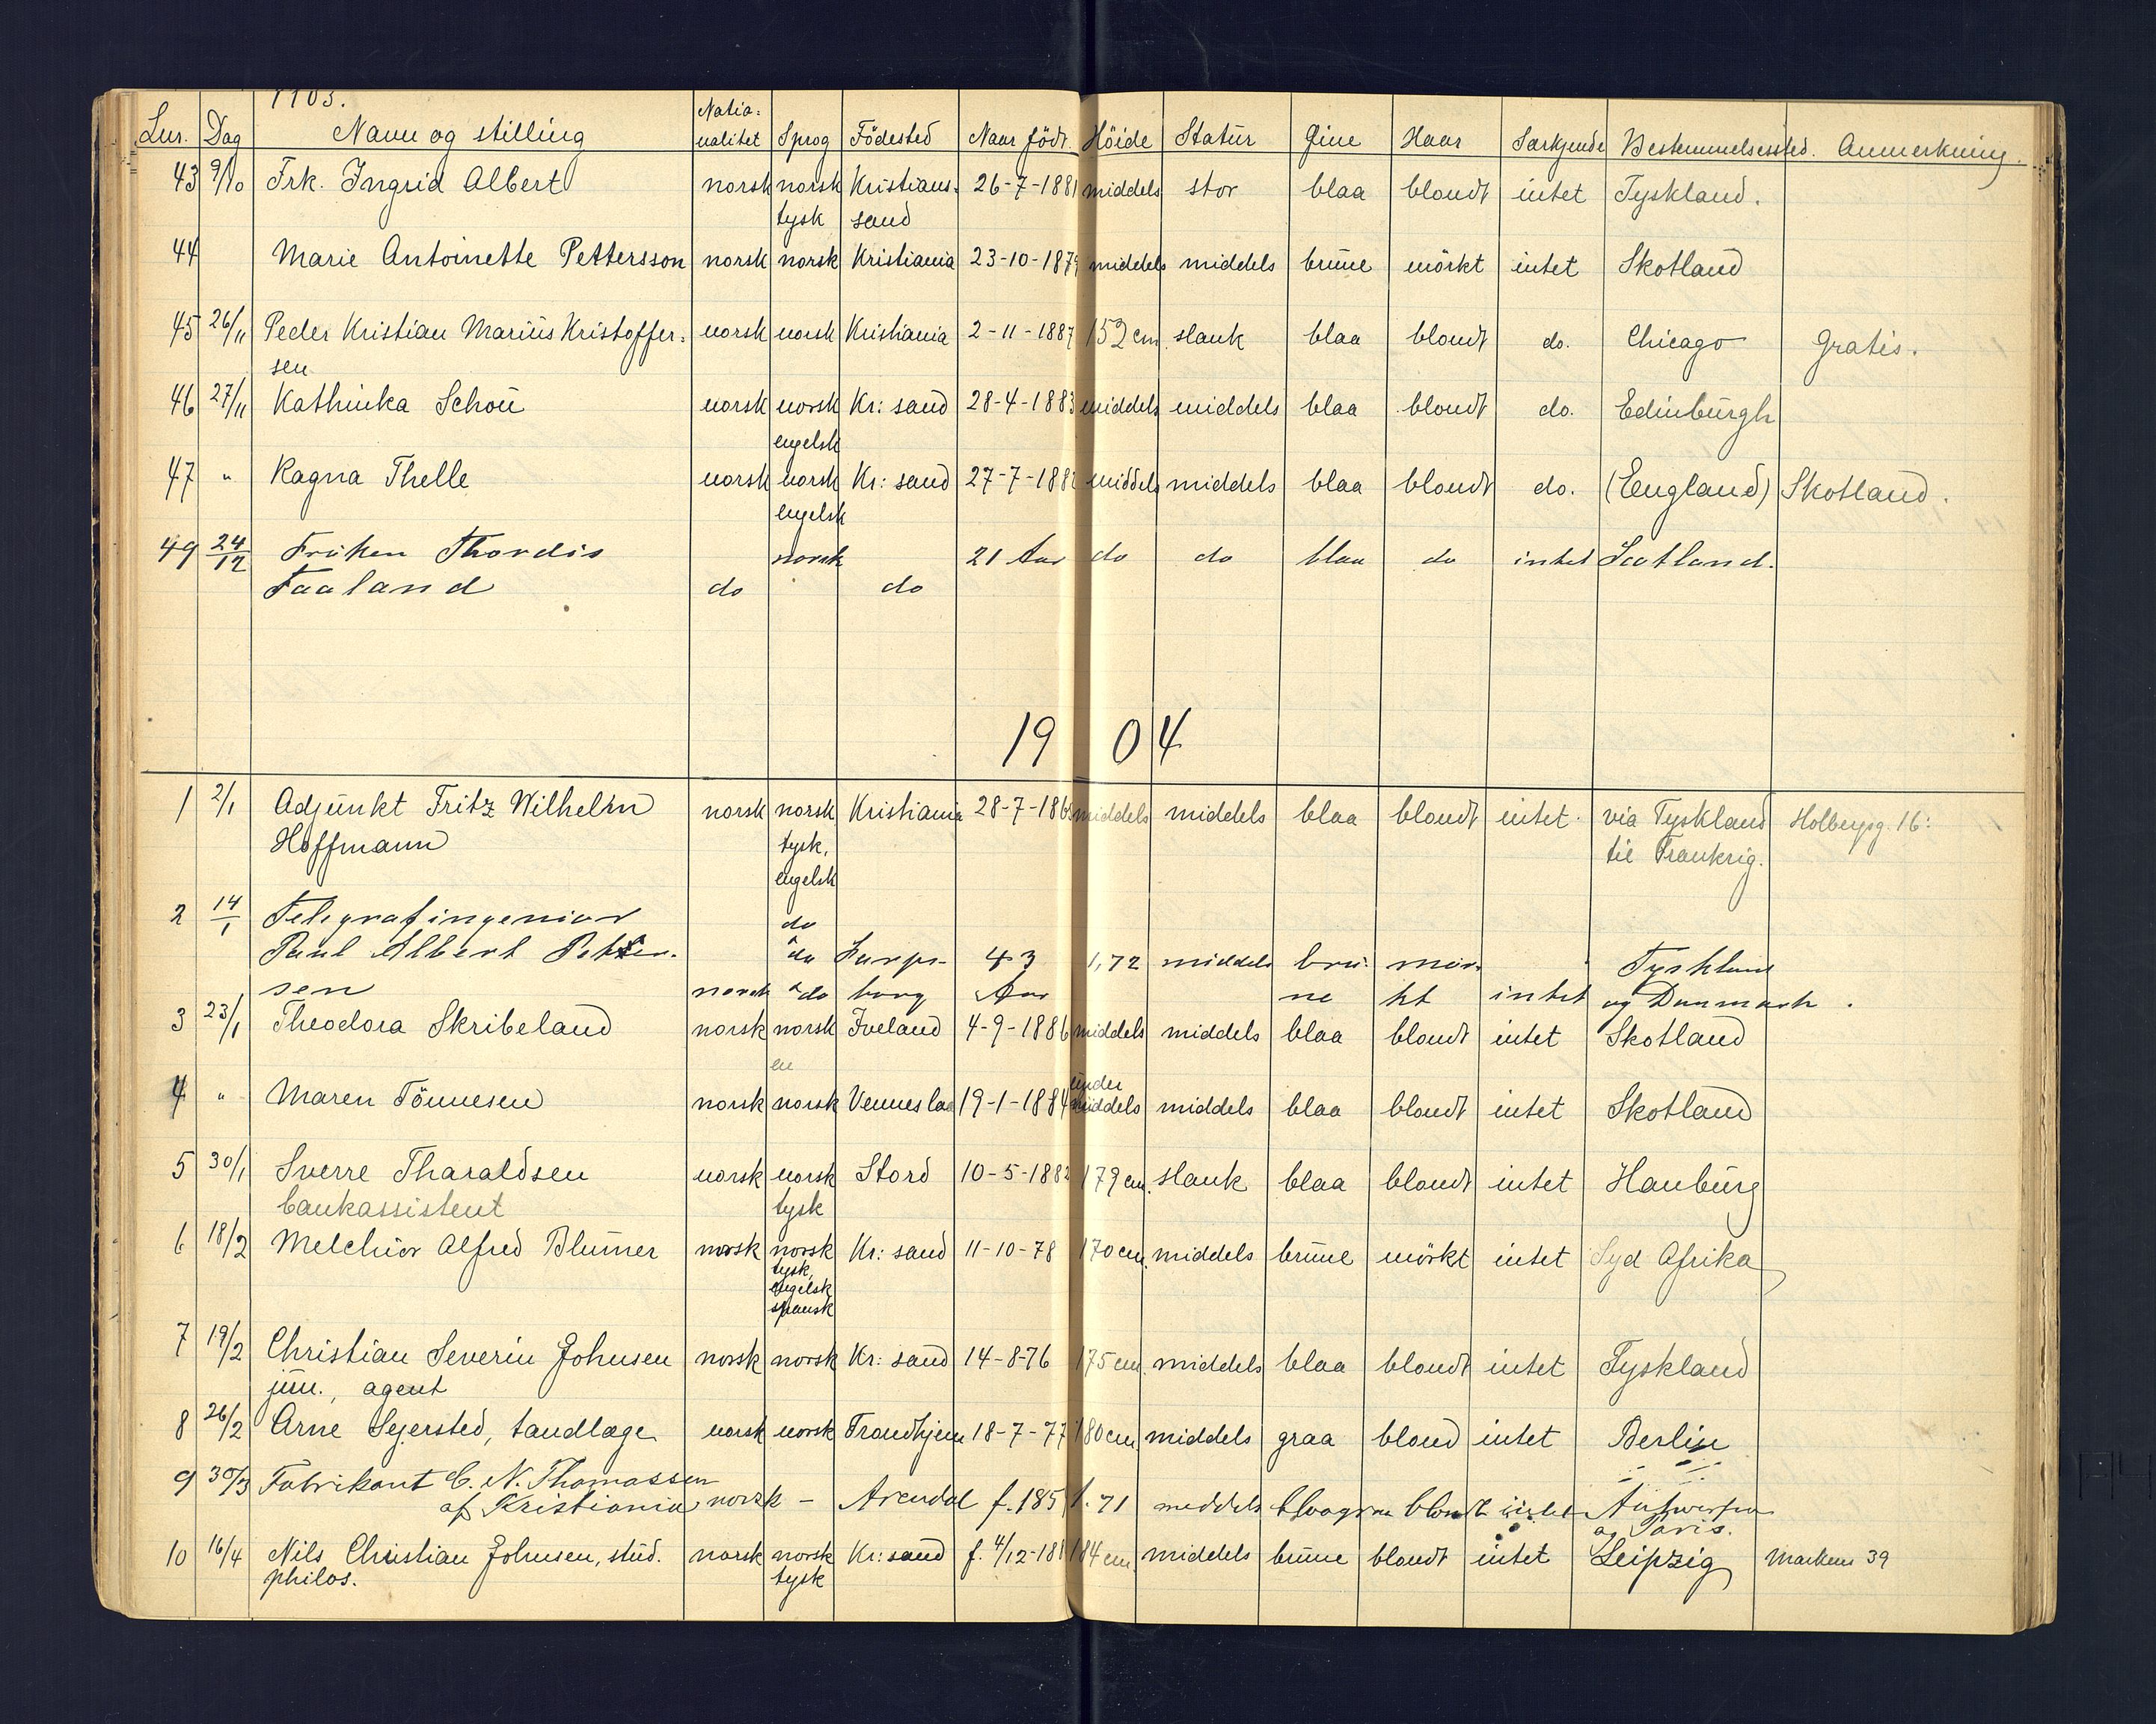 1903.
Lnr. Dag Navn og stilling Natio= nalitet Sprog Födested Naar födt. Höide Statur Øine Haar Særkjende Bestemmelsessted. Anmerkning.
43 9/10 Frk. Ingrid Albert norsk norsk Kristians- 26-7-1881 middels stor blaa blondt intet Tyskland.
tysk sand
44 Marie Antoinette Pettersson norsk norsk Kristiania 23-10-1879 middels middels brune mörkt intet Skotland
45 26/11 Peder Kristian Marius Kristoffer= norsk norsk Kristiania 2-11-1887 152 cm slank blaa blondt do. Chicago Gratis.
sen
46 27/11 Kathinka Schou norsk norsk Kr: sand 28-4-1883 middels middels blaa blondt do. Edinburgh
engelsk
47 " Ragna Thelle norsk norsk Kr: sand 27-7-188 middels middels blaa blondt do. (England) Skotland.
engelsk
49 24/12 Fröken Thordis norsk 21 Aar do do blaa do intet Scotland.
Faaland do do
19 04
1 2/1 Adjunkt Fritz Wilhelm norsk norsk Kristiania 28-7-186 middels middels blaa blondt intet via Tyskland Holbergsg. 16:
Hoffmann tysk, til Frankrig.
engelsk
2 14/1 Telegrafingeniör do
Paul Albert Petter- do Sarps- 43 1,72 middels bru- mör- Tyskland
sen norsk do borg Aar ne kt intet og Danmark.
3 23/1 Theodora Skribeland norsk norsk Iveland 4-9-1886 middels middels blaa blondt intet Skotland
en
under
4 " Maren Tönnesen norsk norsk Vennesla 19-1-1884 middels middels blaa blondt intet Skotland
5 30/1 Sverre Tharaldsen norsk norsk Stord 10-5-1882 179 cm. slank blaa blondt intet Hanburg
bankassistent tysk
6 18/2 Melchior Alfred Blumer norsk norsk Kr: sand 11-10-78 170 cm. middels brune mörkt intet Syd Afrika
tysk,
engelsk
spansk
7 19/2 Christian Severin Johnsen norsk norsk Kr: sand 14-8-76 175 cm. middels blaa blondt intet Tyskland
jun., agent
8 26/2 Arne Sejersted, tandlæge norsk norsk Trondhjem 18-7-77 180 cm middels graa blond intet Berlin
9 30/3 Fabrikant C. N. Thomassen
af Kristiania norsk - Arendal f. 185 1.71 middels blaagraa blondt intet Antwerpen
og Paris.
10 16/4 Nils Christian Johnsen, stud. norsk norsk Kr: sand f. 4/12-18 184 cm. middels brune blondt intet Leipzig Markens 39
philos. tysk